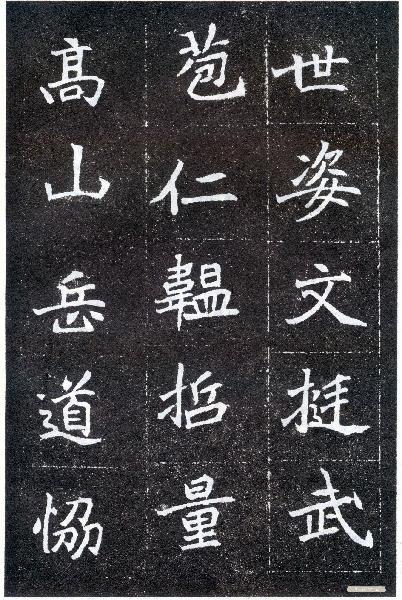 世姿文挺武
苞仁韞哲量
髙山岳道恊